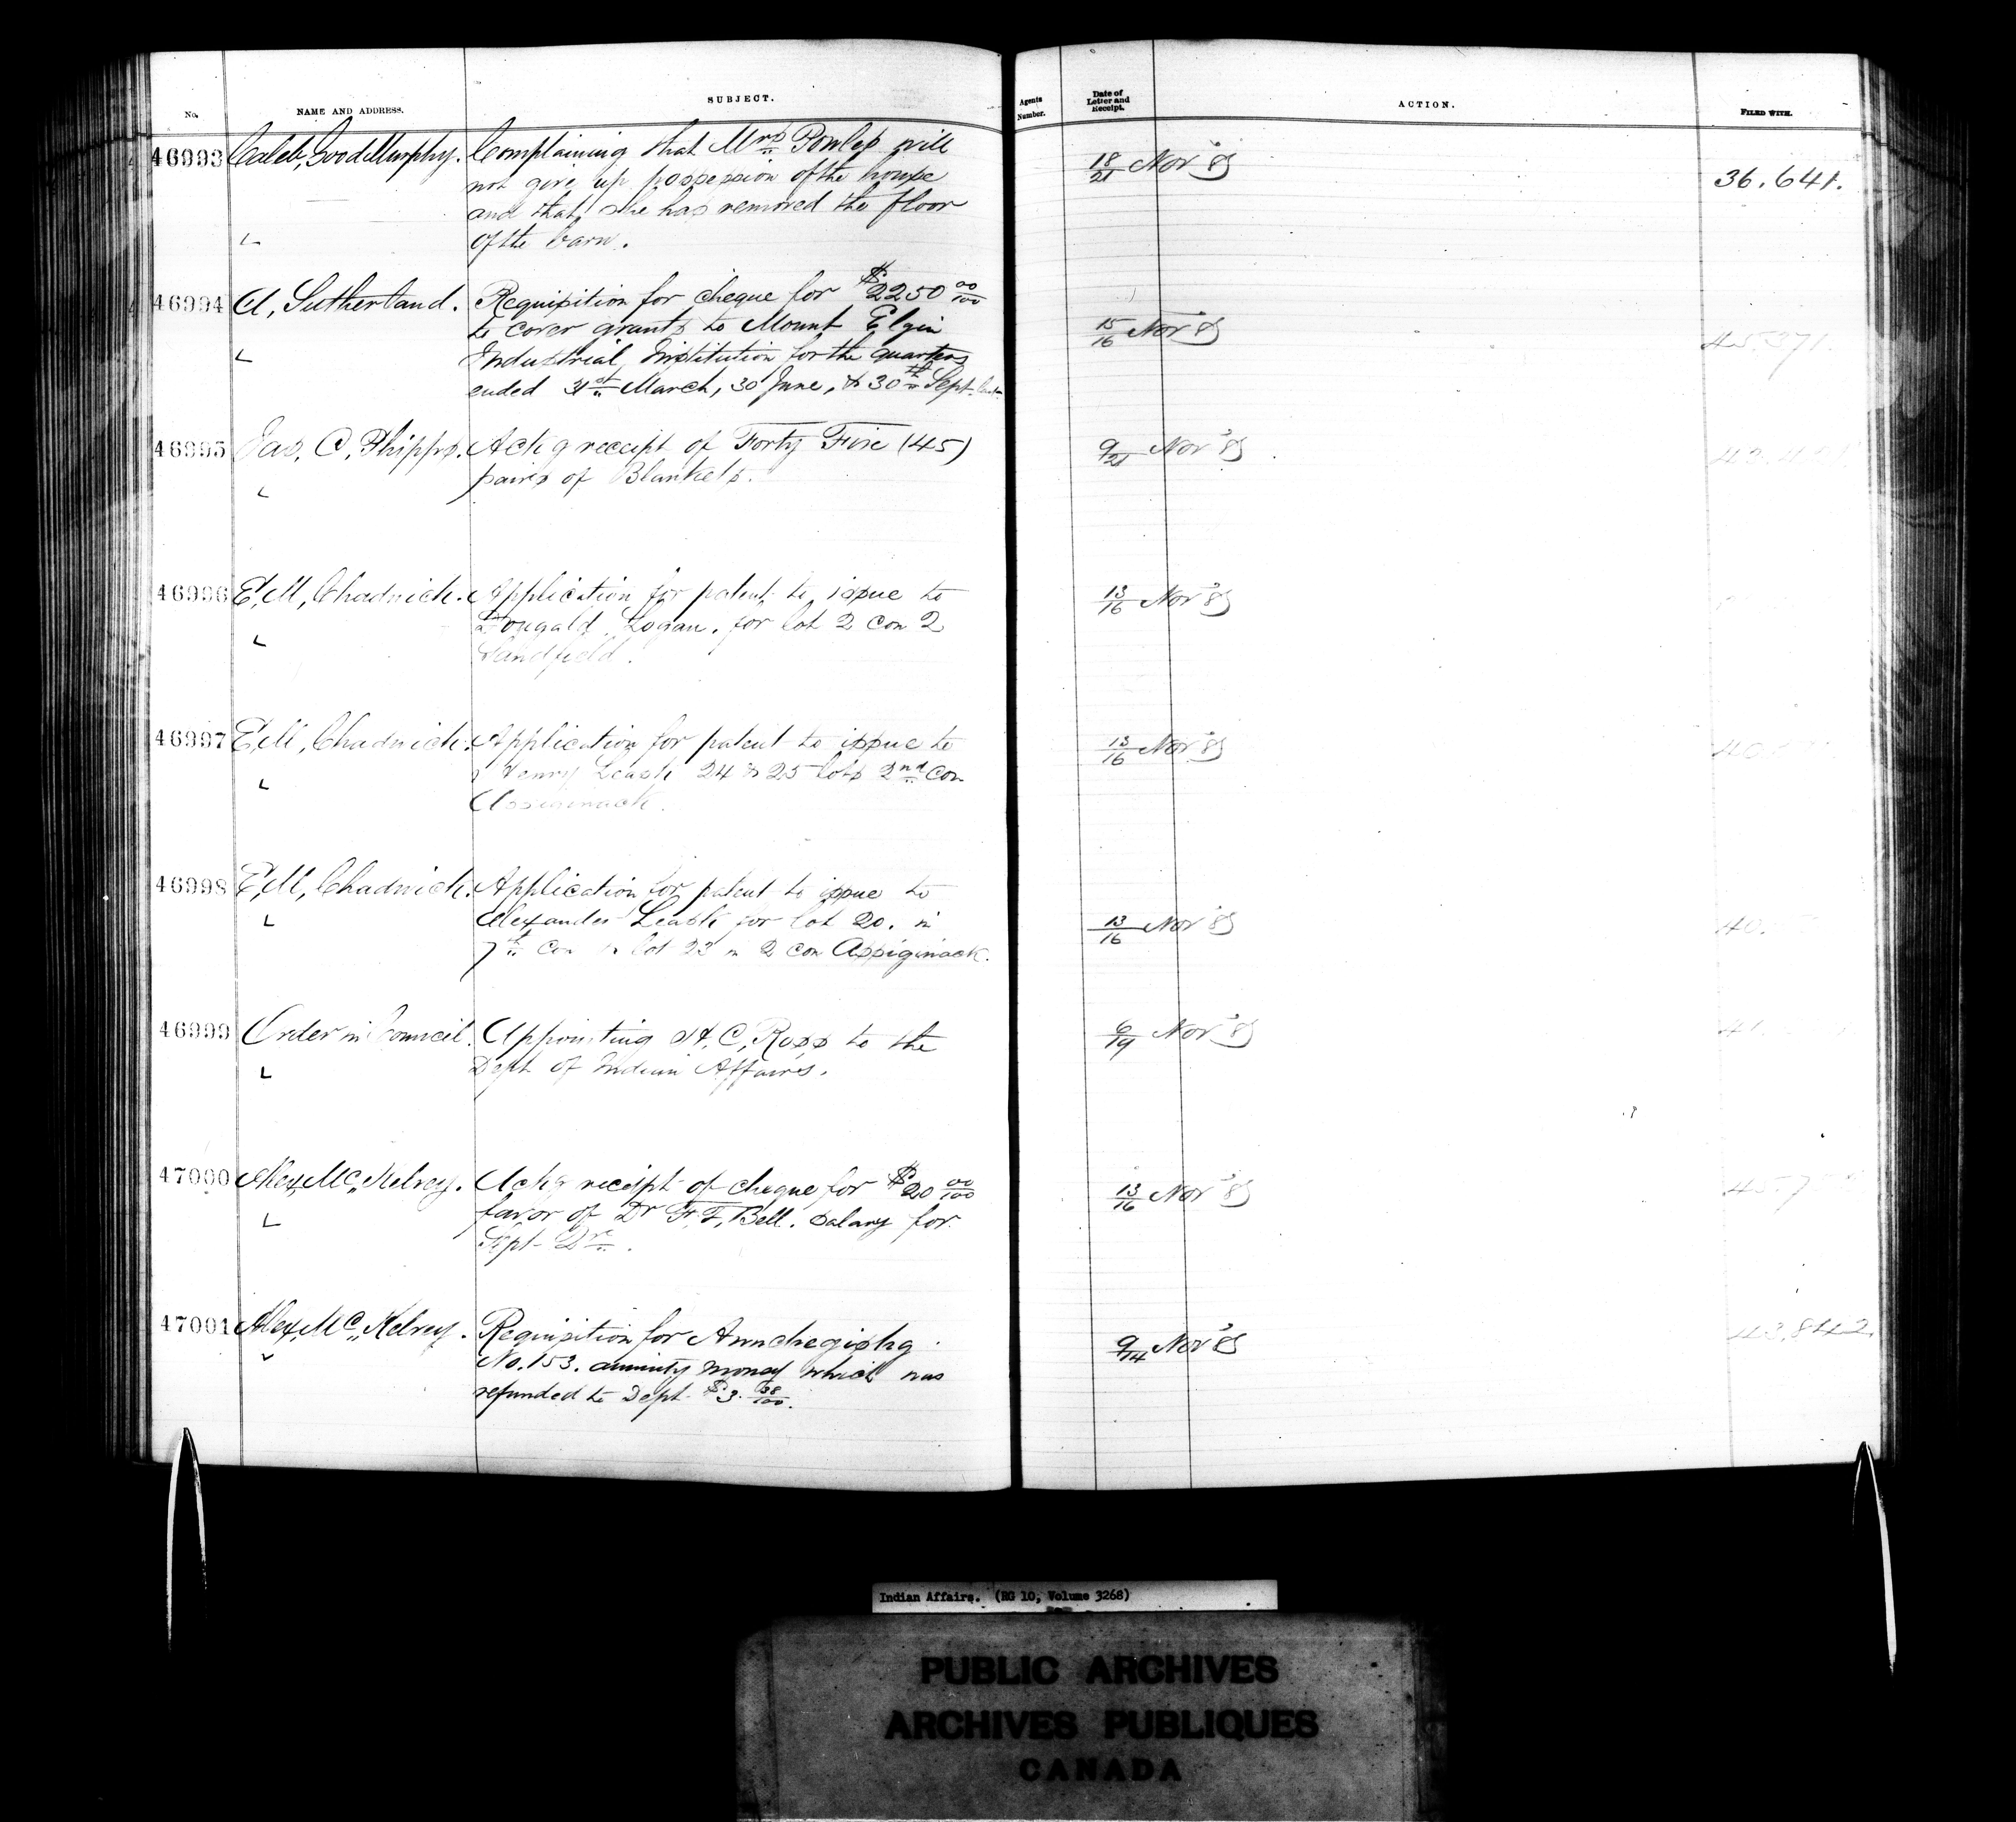 No. NAME AND ADDRESS. SUBJECT. Agents Number. Date of Letter and Receipt. ACTION. FILED WITH.
46993 Caleb, GoodMurphy. Complaining that Mrs Powles will 18/21 Nov '85 36.641.
not give up possession of the house
and that she has removed the floor
of the barn.
46994 A, Sutherland. Requisition for cheque for $2250 00/100
to cover grants to Mount Elgin 15/16 Nov '85 45.371.
Industrial Institution for the quarters
ended 31st March, 30 June, & 30th Sept.
46995 Jas. C, Phipps. Ackg receipt of Forty Five (45) 9/21 Nov '85
pairs of Blankets.
46996 E, M, Chadwick. Application for patent to issue to 13/16 Nov '85
Dougald Logan. for lot 2 Con 2
Sandfield.
46997 E, M, Chadwick. Application for patent to issue to 13/16 Nov '85
Henry Leask 24 & 25 lots 2nd Con
Assiginack.
46998 E, M, Chadwick. Application for patent to issue to
Alexander Leask for lot 20. in 13/16 Nov '85
7th Con & lot 23 in 2 Con Assiginack.
46999 Order in Council. Appointing H. C, Ross to the 6/19 Nov '85
Dept of Indian Affairs.
47000 Alex, Mc, Kelvey. Ackg receipt of cheque for $20 00/100 13/16 Nov '85
favor of Dr F. F, Bell. salary for
Sept
47001 Alex, Mc, Kelvey. Requisition for 9/14 Nov '85 43,842.
No. 153. annuity money which was
refunded to Dept $3. 38/100.
Indian Affairs. (RG 10, Volume 3268)
PUBLIC ARCHIVES
ARCHIVES PUBLIQUES
CANADA